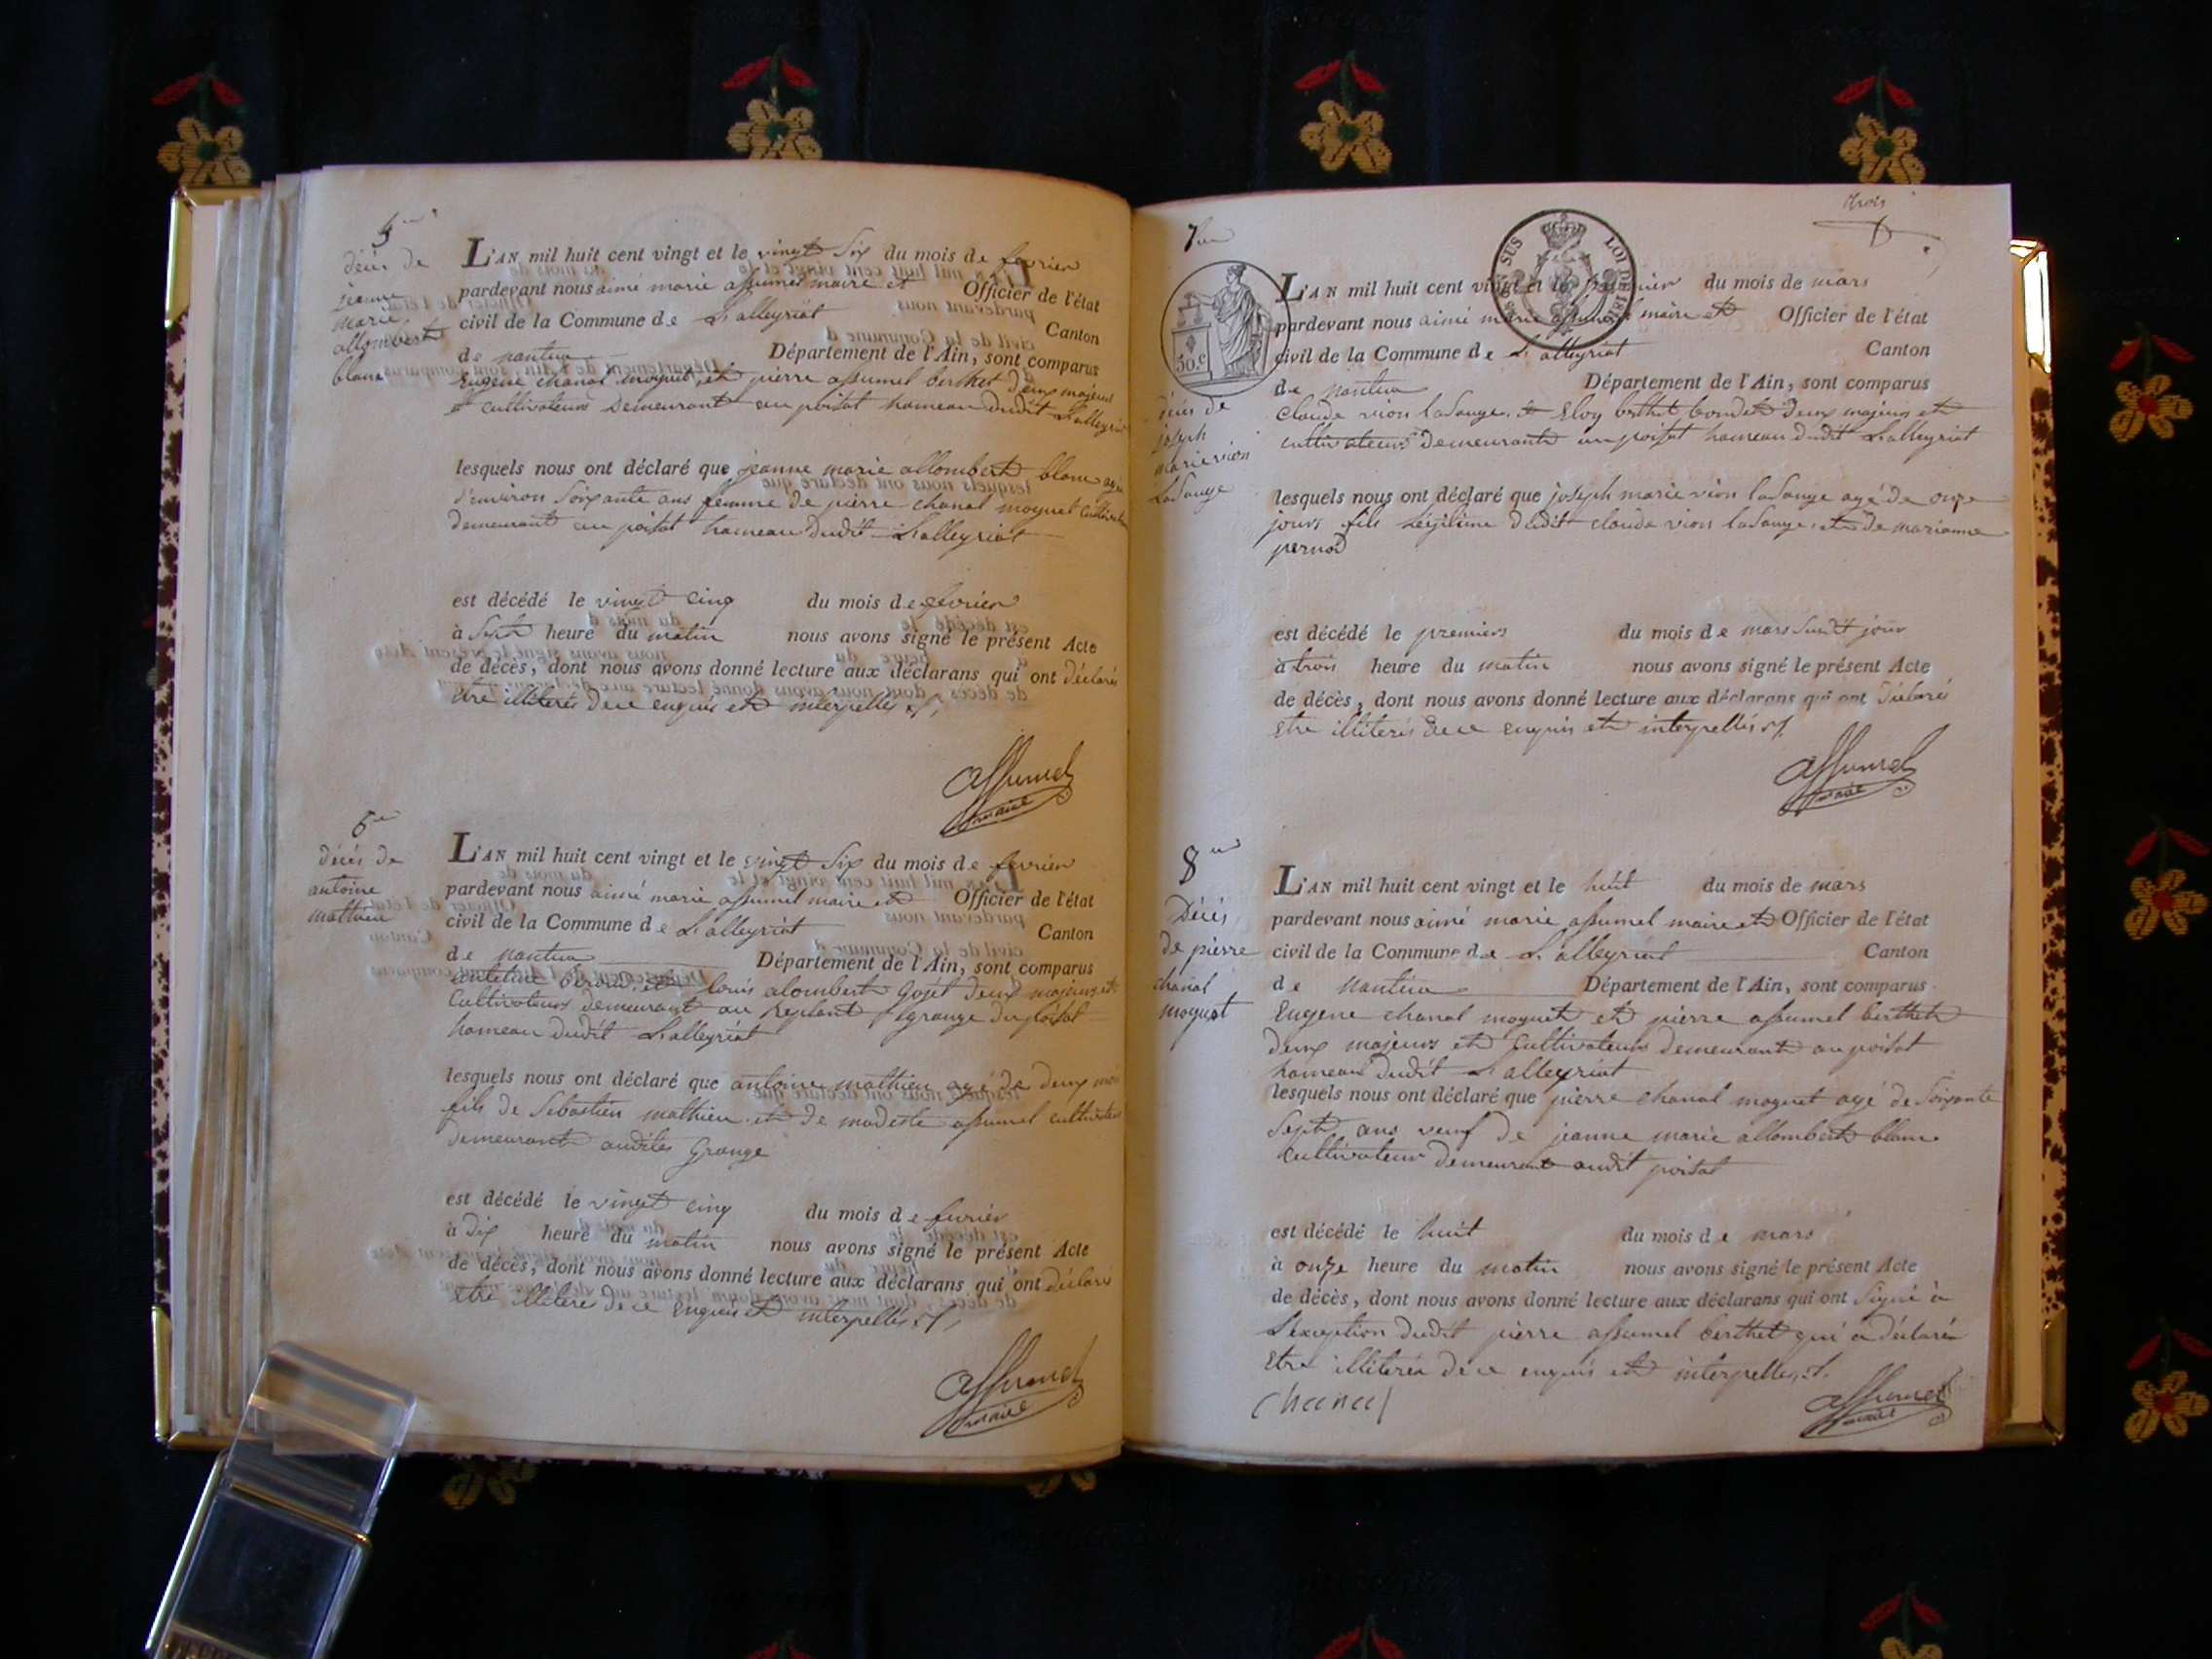 5me
décès de
jeanne
marie
allombert
blanc
L'AN mil huit cent vingt et le vingt Six du mois de fevrier
pardevant nous aimé marie assumel maire et Officier de l'état
civil de la Commune de L'alleyriat Canton
de nantua Département de l'Ain, sont comparus
Eugene chanal moguet, et pierre assumel berthet deux majeurs
et cultivateurs demeurant au poisat hameau dudit L'alleyriat
lesquels nous ont déclaré que jeanne marie allombert blanc agée
d'environ Soixante ans femme de pierre chanal moguet cultivateur
demeurant au poisat hameau dudit L'alleyriat
est décédé le vingt cinq du mois de fevrier
à Sept heure du matin nous avons signé le présent Acte
de décès, dont nous avons donné lecture aux déclarans qui ont déclarés
etre illiterés de ce enquis et interpellés
assumel
maire
6me
décès de
antoine
mathieu
L'AN mil huit cent vingt et le vingt Six du mois de fevrier
pardevant nous aimé marie assumel maire et Officier de l'état
civil de la Commune de L'alleyriat Canton
de nantua Département de l'Ain, sont comparus
et louis alombert gojet deux majeurs et
cultivateurs demeurant au grange du poisat
hameau dudit L'alleyriat
lesquels nous ont déclaré que antoine mathieu agé de deux mois
fils de Sebastien mathieu et de modeste assumel cultivateurs
demeurant audites Grange
est décédé le vingt cinq du mois de fevrier
à dix heure du matin nous avons signé le présent Acte
de décès, dont nous avons donné lecture aux déclarans qui ont déclaré
etre illiteré de ce enquis et interpellés
assumel
maire
trois
7me
SUS
LOI DE 1816
50.c
décès de
joseph
marie vion
Lasauge
L'AN mil huit cent vingt et le premier du mois de mars
pardevant nous aimé marie assumel maire et Officier de l'état
civil de la Commune de L'alleyriat Canton
de nantua Département de l'Ain, sont comparus
Claude vion lasauge, et Eloy berthet bondet deux majeurs et
cultivateurs demeurants au poisat hameau dudit L'alleyriat
lesquels nous ont déclaré que joseph marie vion lasauge agé de onze
jours fils légitime dudit claude vion lasauge, et de marianne
pernod
est décédé le premiers du mois de mars Sudit jour
à trois heure du matin nous avons signé le présent Acte
de décès, dont nous avons donné lecture aux déclarans qui ont déclaré
etre illiterés de ce enquis et interpellés
assumel
maire
8me
Décès
de pierre
chanal
moguet
L'AN mil huit cent vingt et le huit du mois de mars
pardevant nous aimé marie assumel maire et Officier de l'état
civil de la Commune de L'alleyriat Canton
de nantua Département de l'Ain, sont comparus
Eugene chanal moguet et pierre assumel berthet
deux majeurs et cultivateurs demeurant au poisat
hameau dudit L'alleyriat
lesquels nous ont déclaré que pierre chanal moguet agé de Soixante
Sept ans veuf de jeanne marie allombert blanc
cultivateur demeurant audit poisat
est décédé le huit du mois de mars
à onze heure du matin nous avons signé le présent Acte
de décès, dont nous avons donné lecture aux déclarans qui ont Signé à
L'exception dudit pierre assumel berthet qui a déclaré
etre illiteré de ce enquis et interpellés
chanal
assumel
maire